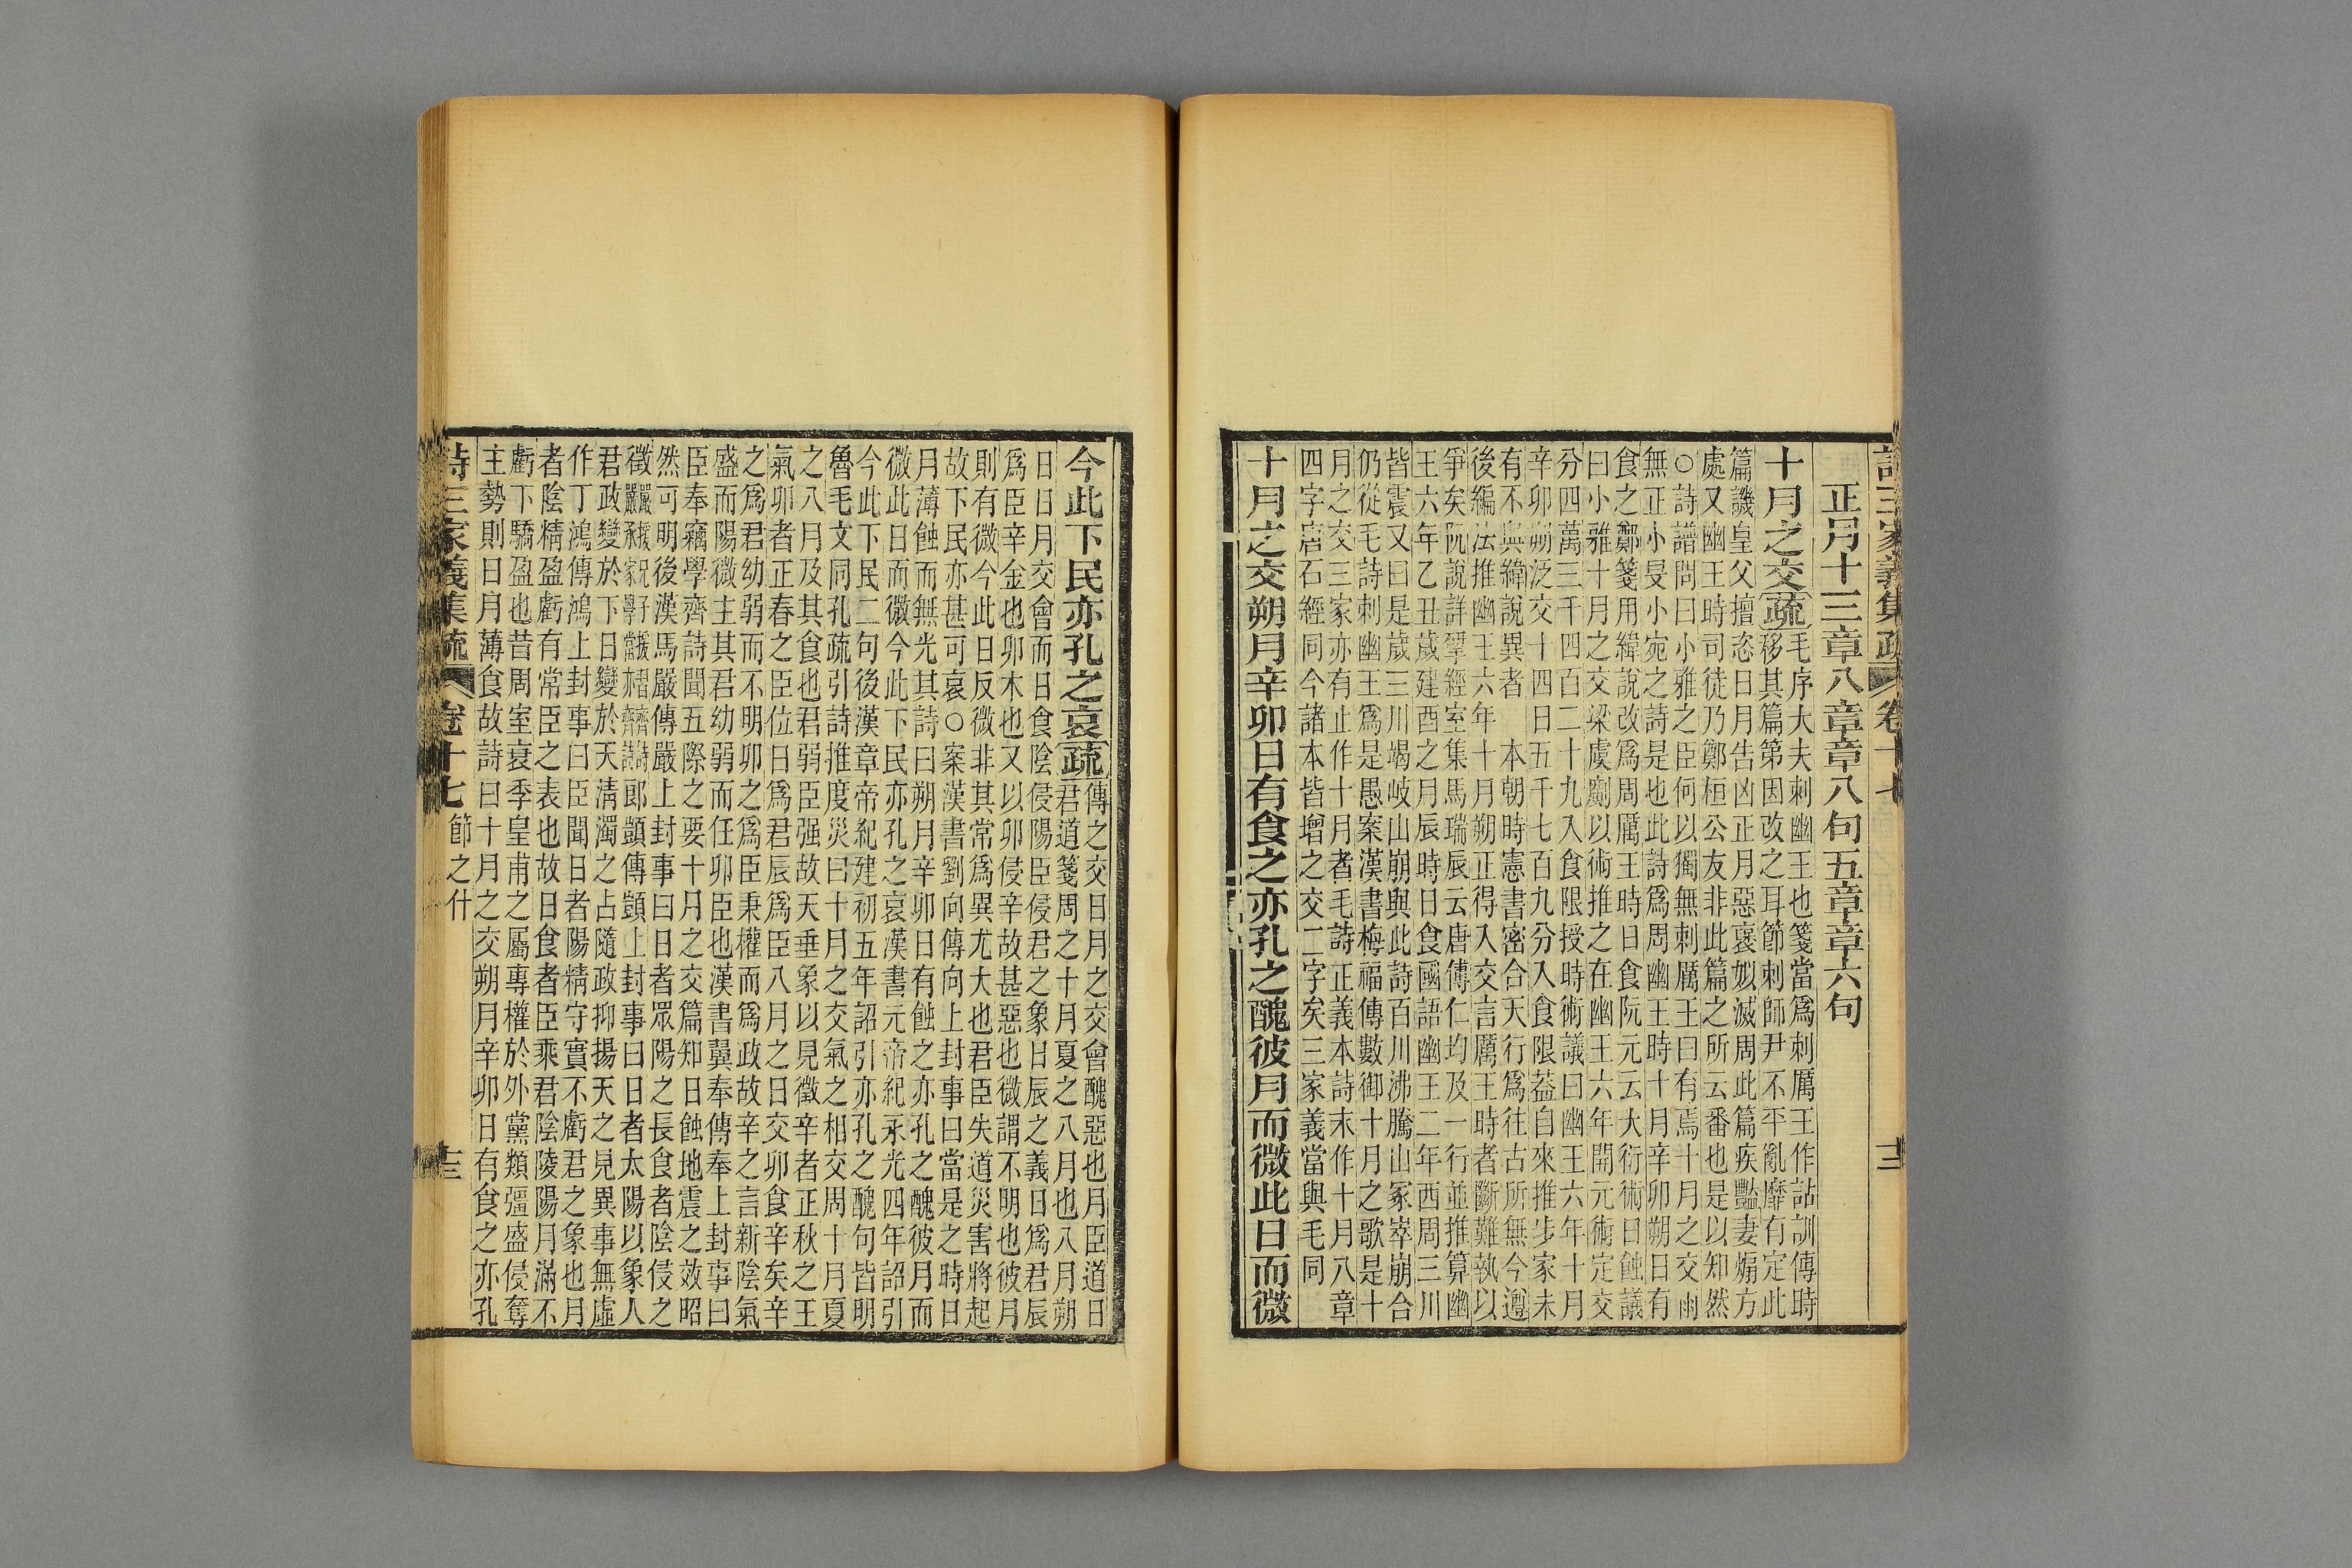 詩三家義集疏 卷十七 十二
正月十三章八章章八句五章章六句
十月之交疏
毛序大夫刺幽王也箋當爲刺厲王作詁訓傳時
移其篇第因改之耳節刺師尹不平亂靡有定此
篇譏皇父擅恣日月告凶正月惡褒姒滅周此篇疾豔妻煽方
處又幽王時司徒乃鄭桓公友非此篇之所云番也是以知然
○詩譜問曰小雅之臣何以獨無刺厲王曰有焉十月之交雨
無正小旻小宛之詩是也此詩爲周幽王時十月辛卯朔日有
食之鄭箋用緯說改爲周厲王時日食阮元云大衍術日蝕議
曰小雅十月之交梁虞𠠎以術推之在幽王六年開元術定交
分四萬三千四百二十九入食限授時術議曰幽王六年十月
辛卯朔泛交十四日五千七百九分入食限蓋自來推步家未
有不與緯說異者 本朝時憲書密合天行爲往古所無今遵
後編法推幽王六年十月朔正得入交言厲王時者斷難執以
爭矣阮說詳揅經室集馬瑞辰云唐傅仁均及一行並推算幽
王六年乙丑歲建酉之月辰時日食國語幽王二年西周三川
皆震又曰是歲三川竭岐山崩與此詩百川沸騰山冢崒崩合
仍從毛詩刺幽王爲是愚案漢書梅福傳數御十月之歌是十
月之交三家亦有止作十月者毛詩正義本詩末作十月八章
四字唐石經同今諸本皆增之交二字矣三家義當與毛同
十月之交朔月辛卯日有食之亦孔之醜彼月而微此日而微
今此下民亦孔之哀疏
傳之交日月之交會醜惡也月臣道日
君道箋周之十月夏之八月也八月朔
日日月交會而日食陰侵陽臣侵君之象日辰之義日爲君辰
爲臣辛金也卯木也又以卯侵辛故甚惡也微謂不明也彼月
則有微今此日反微非其常爲異尤大也君臣失道災害將起
故下民亦甚可哀○案漢書劉向傳向上封事曰當是之時日
月薄蝕而無光其詩曰朔月辛卯日有蝕之亦孔之醜彼月而
微此日而微今此下民亦孔之哀漢書元帝紀永光四年詔引
今此下民二句後漢章帝紀建初五年詔引亦孔之醜句皆明
魯毛文同孔疏引詩推度災曰十月之交氣之相交周十月夏
之八月及其食也君弱臣强故天垂象以見徵辛者正秋之王
氣卯者正春之臣位日爲君辰爲臣八月之日交卯食辛矣辛
之爲君幼弱而不明卯之爲臣秉權而爲政故辛之言新陰氣
盛而陽微主其君幼弱而任卯臣也漢書翼奉傳奉上封事曰
臣奉竊學齊詩聞五際之要十月之交篇知日蝕地震之效昭
然可明後漢馬嚴傳嚴上封事曰日者眾陽之長食者陰侵之
徵嚴援兄子援習齊詩嚴承家學當亦齊詩郎顗傳顗上封事曰日者太陽以象人
君政變於下日變於天清濁之占隨政抑揚天之見異事無虛
作丁鴻傳鴻上封事曰臣聞日者陽精守實不虧君之象也月
者陰精盈虧有常臣之表也故日食者臣乘君陰陵陽月滿不
虧下驕盈也昔周室衰季皇甫之屬專權於外黨類彊盛侵奪
主勢則日月薄食故詩曰十月之交朔月辛卯日有食之亦孔
詩三家義集疏 卷十七 節之什 十三